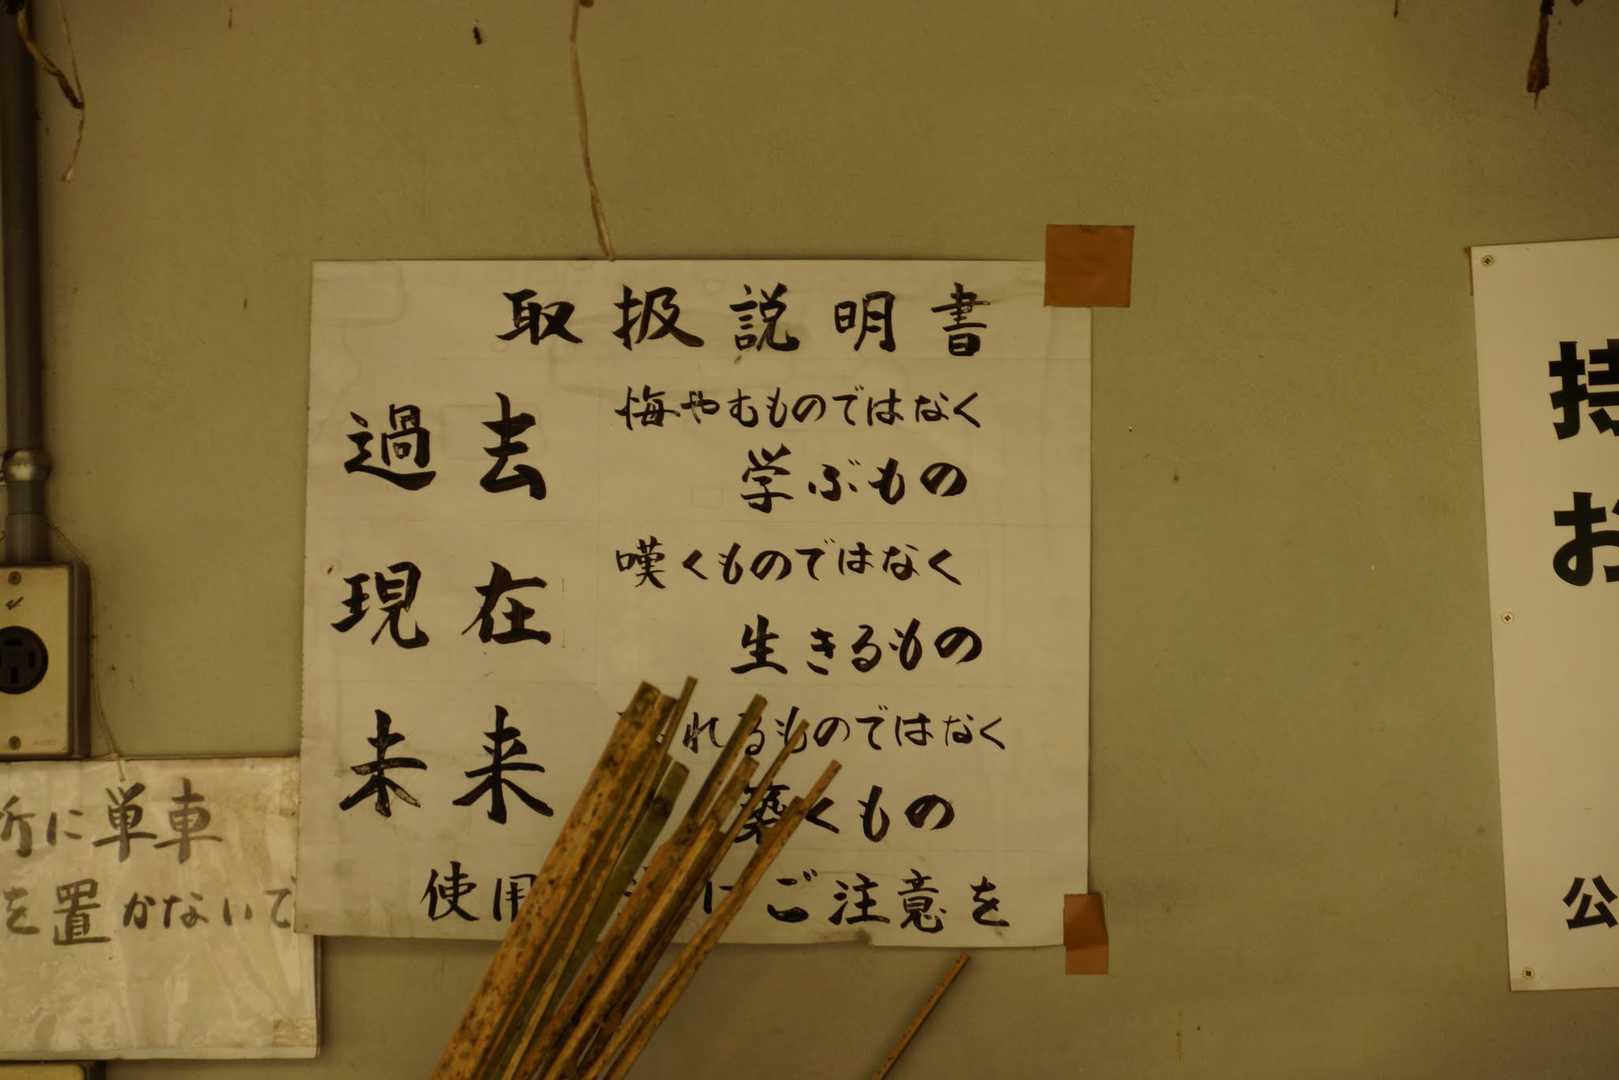 取扱説明書
過去
悔やむものではなく
学ぶもの
現在
嘆くものではなく
生きるもの
未来
れるものではなく
築くもの
使用 にご注意を
所に単車
を置かないで
持
お
公